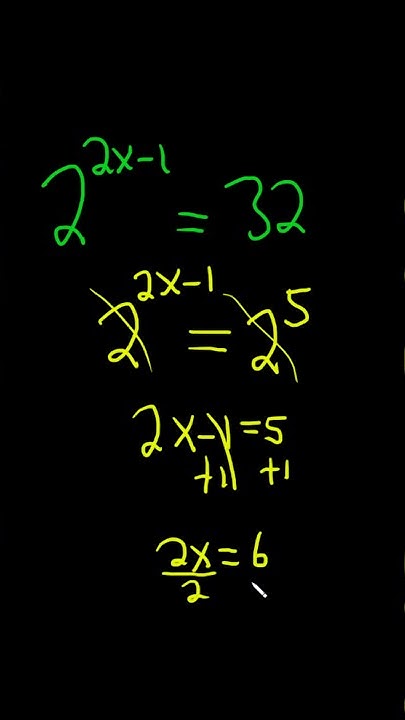 2^{2x-1} = 32
2^{2x-1} = 2^5
2x-1=5
+1 +1
2x=6
2